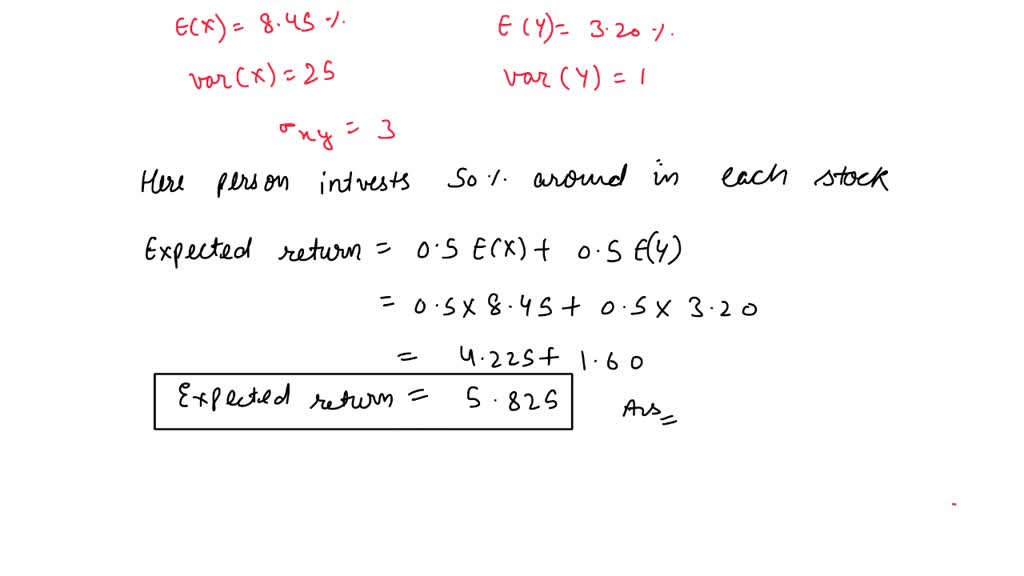 E(X) = 8.45 %. E(Y) = 3.20 %.
var(X) = 25 var(Y) = 1
σxy = 3
Here person intvests 50 %. around in each stock
Expected return = 0.5 E(X) + 0.5 E(Y)
= 0.5 x 8.45 + 0.5 x 3.20
= 4.225 + 1.60
Expected return = 5.825 Ans